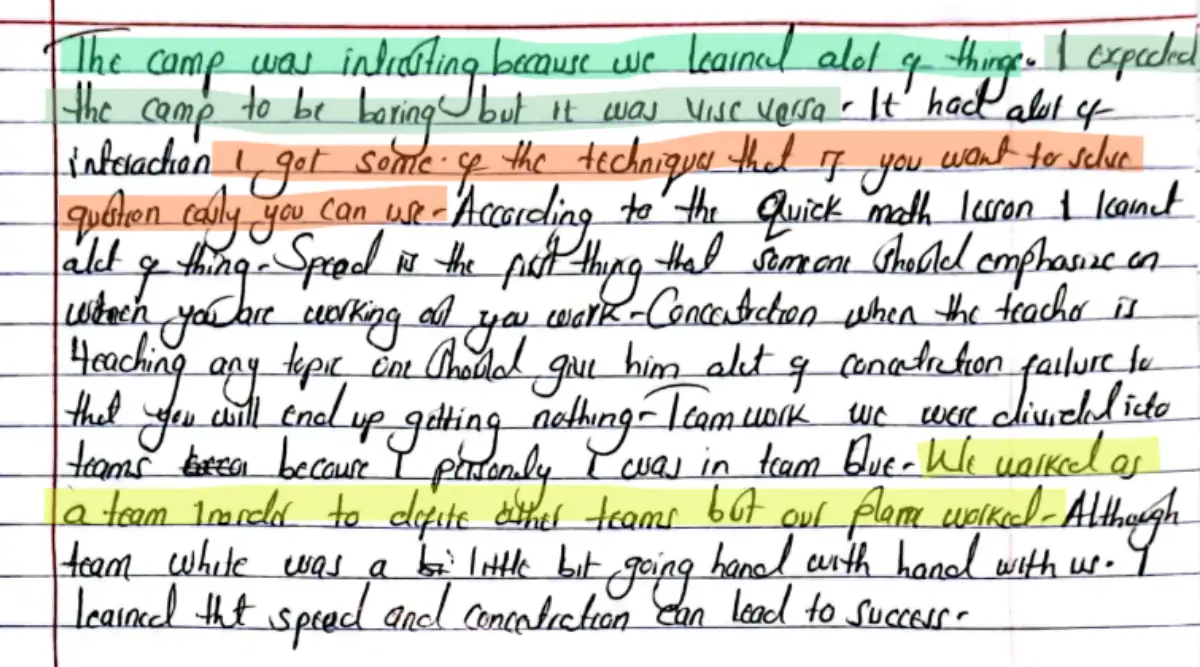 The camp was intresting because we learned alot of things. I expected
the camp to be boring but it was vise versa. It had alot of
interaction I got some of the techniques that if you want to solve
question easly you can use. According to the Quick math lesson I learnt
alot of thing. Speed is the first thing that someone should emphasize on
when you are working out you work. Concentraction when the teacher is
teaching any topic one should give him alot of concentretion failure to
that you will end up getting nothing. Team work we were divided into
teams because I personaly I was in team Blue. We worked as
a team inorder to defite other teams but our plans worked. Although
team white was a little bit going hand with hand with us. I
learned tht speed and concentraction can lead to success.